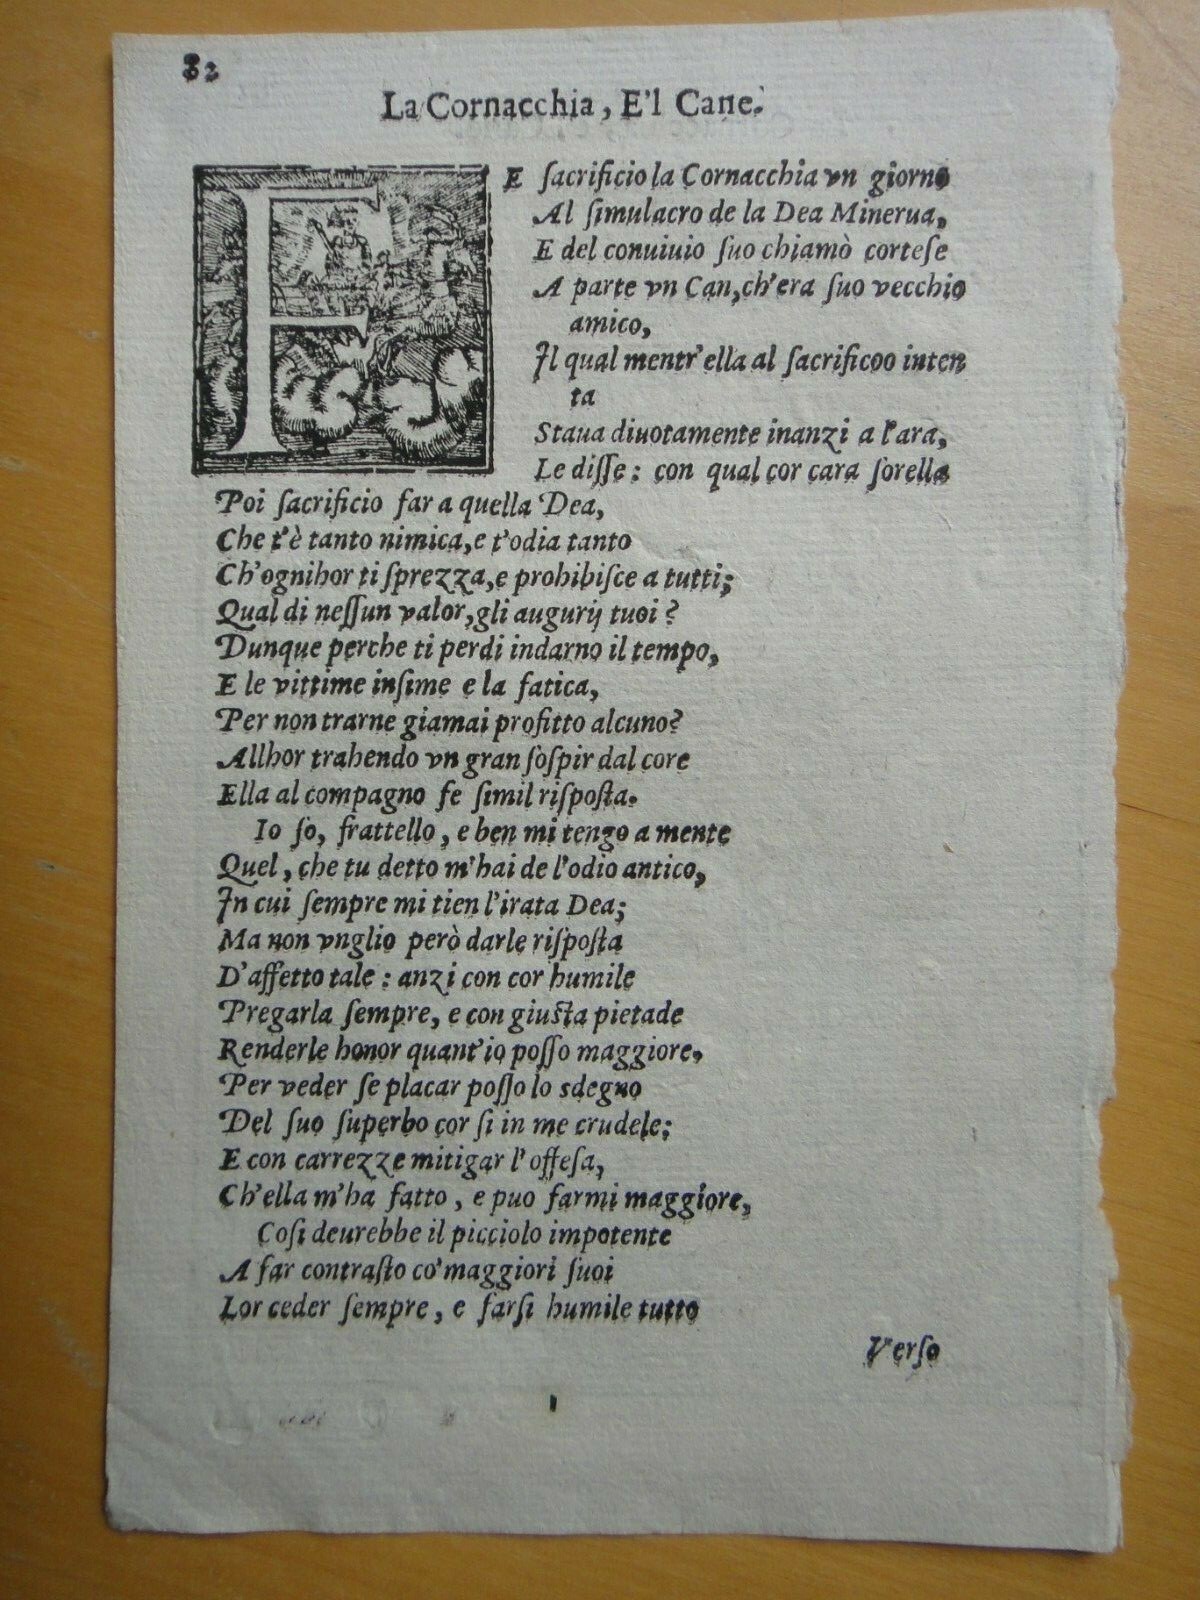 82
La Cornacchia, E'l Cane.
FE ſacrificio la Cornacchia vn giorno
Al ſimulacro de la Dea Minerua,
E del conuiuio ſuo chiamò corteſe
A parte vn Can, ch'era ſuo vecchio
amico,
Il qual mentr'ella al ſacrificoo inten
ta
Staua diuotamente inanzi a l'ara,
Le diſſe: con qual cor cara ſorella
Poi ſacrificio far a quella Dea,
Che t'è tanto nimica, e t'odia tanto
Ch'ognihor ti ſprezza, e prohibiſce a tutti;
Qual di neſſun valor, gli augurij tuoi?
Dunque perche ti perdi indarno il tempo,
E le vittime inſime e la fatica,
Per non trarne giamai profitto alcuno?
Allhor trahendo vn gran ſoſpir dal core
Ella al compagno fe ſimil riſpoſta.
Io ſo, frattello, e ben mi tengo a mente
Quel, che tu detto m'hai de l'odio antico,
In cui ſempre mi tien l'irata Dea;
Ma non vnglio però darle riſpoſta
D'affetto tale: anzi con cor humile
Pregarla ſempre, e con giuſta pietade
Renderle honor quant'io poſſo maggiore,
Per veder ſe placar poſſo lo sdegno
Del ſuo ſuperbo cor ſi in me crudele;
E con carrezze mitigar l'offeſa,
Ch'ella m'ha fatto, e puo farmi maggiore,
Coſi deurebbe il picciolo impotente
A far contraſto co'maggiori ſuoi
Lor ceder ſempre, e farſi humile tutto
Verſo